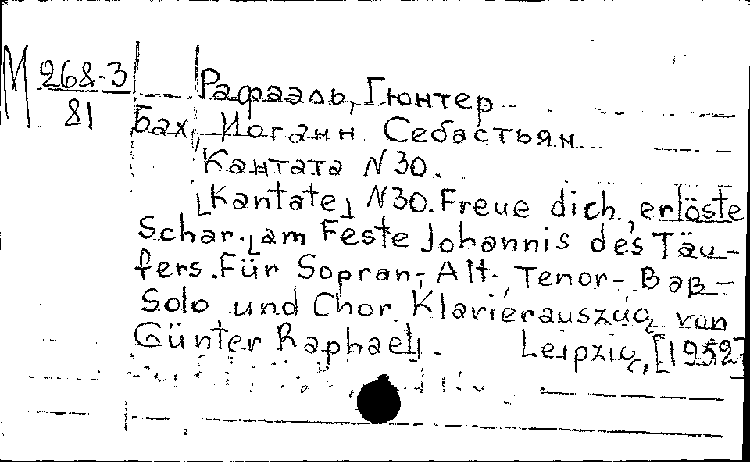 М 268-3 Рафаэль, Гюнтер
81 Бах, Иоганн Себастьян
Кантата N 30.
[Kantate] N 30. Freue dich, erlöste
Schar. [am Feste Johannis des Täu-
fers. Für Sopran-, Alt-, Tenor-, Baß-
Solo und Chor. Klavierauszug von
Günter Raphael].
Leipzig, [1952]